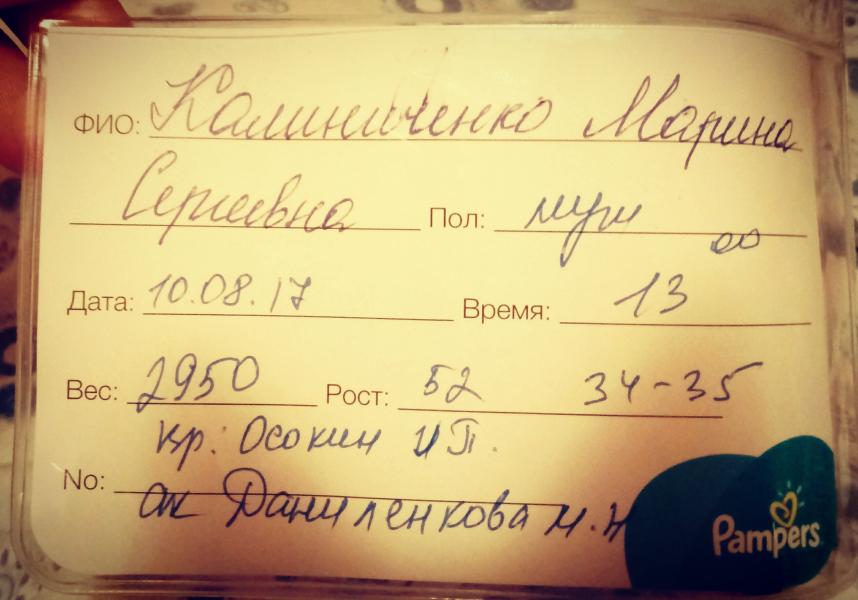 ФИО: Калиниченко Марина
Сергеевна Пол: муж
Дата: 10.08.17 Время: 13 00
Вес: 2950 Рост: 52 34-35
вр: Осокин И П.
No: ак Даниленкова М.Н
Pampers